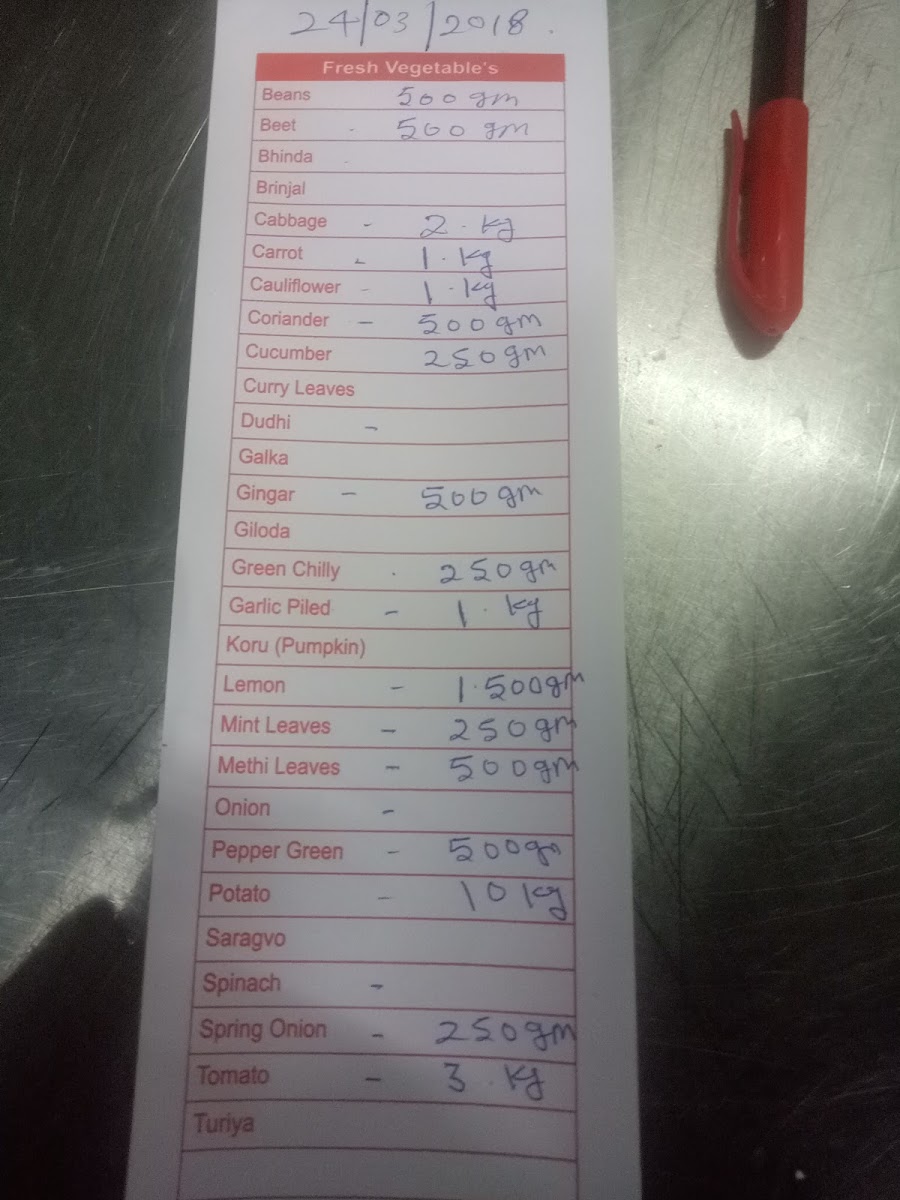 24/03/2018.
Fresh Vegetable's
Beans 500 gm
Beet - 500 gm
Bhinda
Brinjal
Cabbage - 2. kg
Carrot - 1. kg
Cauliflower - 1. kg
Coriander - 500 gm
Cucumber 250 gm
Curry Leaves
Dudhi -
Galka
Gingar - 500 gm
Giloda
Green Chilly - 250 gm
Garlic Piled - 1. kg
Koru (Pumpkin)
Lemon - 1.500 gm
Mint Leaves - 250 gm
Methi Leaves - 500 gm
Onion -
Pepper Green - 500 gm
Potato - 10 kg
Saragvo
Spinach -
Spring Onion - 250 gm
Tomato - 3. kg
Turiya